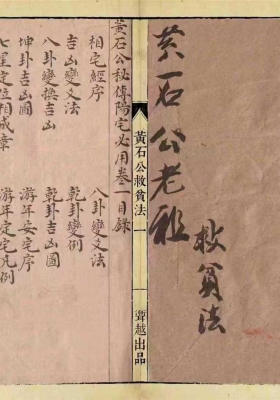 黃石公老祖
救貧法
黃石公救貧法 一
越出品
黃石公秘傳陽宅必用卷一目錄
相宅經序 八卦變爻法
吉凶變爻法 乾卦變例
八卦變換吉凶 乾卦吉凶圖
坤卦吉凶圖 游年安宅序
七星定位相成章 游年定宅凡例